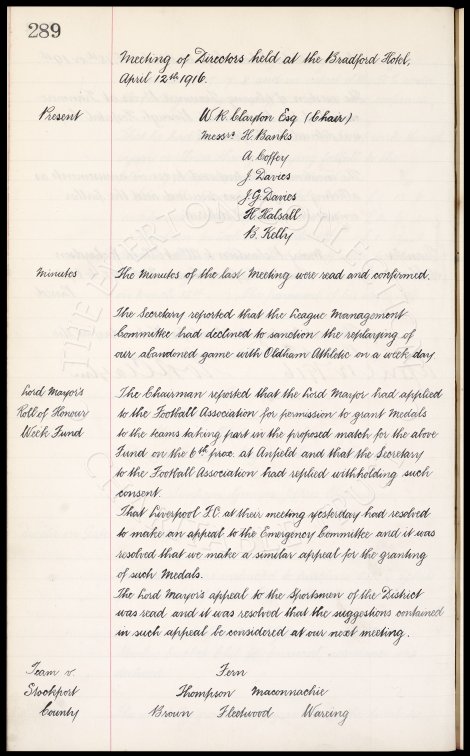 289
Meeting of Directors held at the Bradford Hotel,
April 12th 1916.
Present W.R. Clayton Esq (Chair).
Messrs H. Banks
A. Coffey
J. Davies
J.G. Davies
H. Halsall
B. Kelly
Minutes The Minutes of the last Meeting were read and confirmed.
The Secretary reported that the League Management
Committee had declined to sanction the replaying of
our abandoned game with Oldham Athletic on a week day
Lord Mayor's The Chairman reported that the Lord Mayor had applied
Roll of Honour to the Football Association for permission to grant Medals
Week Fund to the teams taking part in the proposed match for the above
Fund on the 6th prox. at Anfield and that the Secretary
to the Football Association had replied withholding such
consent.
That Liverpool F.C. at their meeting yesterday had resolved
to make an appeal to the Emergency Committee and it was
resolved that we make a similar appeal for the granting
of such Medals.
The Lord Mayor's appeal to the Sportsmen of the District
was read and it was resolved that the suggestions contained
in such appeal be considered at our next meeting.
Team v. Fern
Stockport Thompson Maconnachie
County Brown Fleetwood Wareing